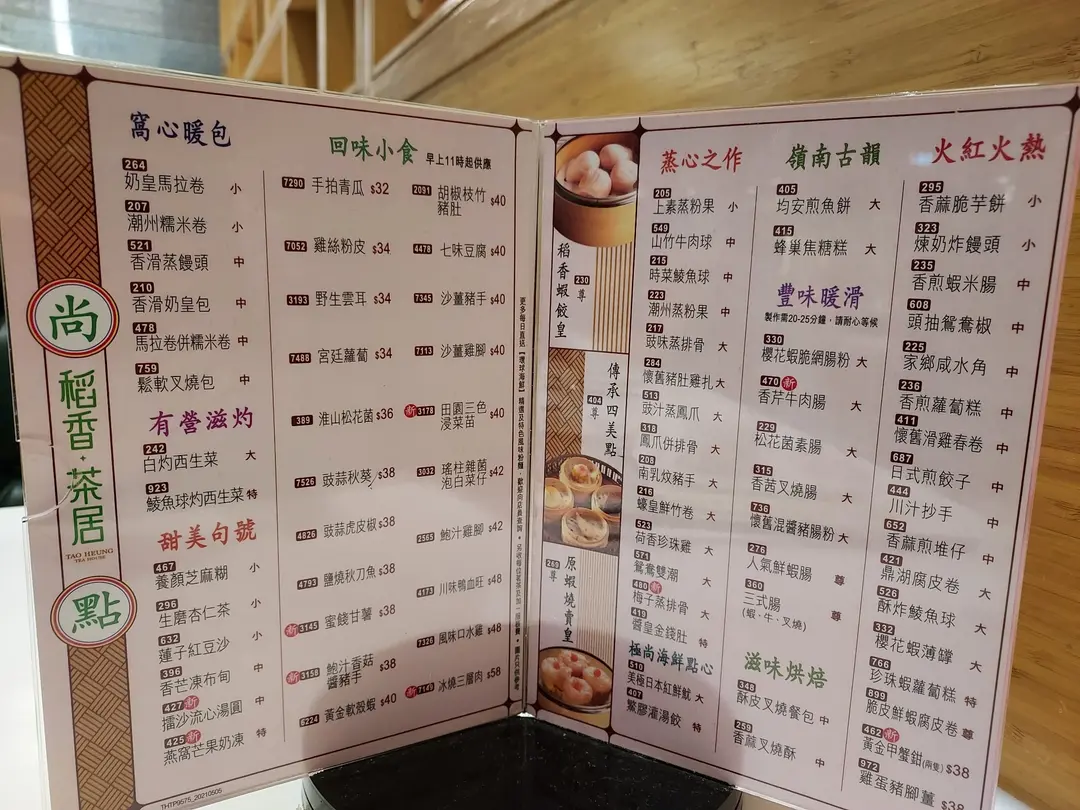 尚
稻香·茶居
TAO HEUNG
TEA HOUSE
點
窩心暖包
264
奶皇馬拉卷 小
207
潮州糯米卷 小
521
香滑蒸饅頭 中
210
香滑奶皇包 中
478
馬拉卷併糯米卷 中
759
鬆軟叉燒包 中
有營滋灼
242
白灼西生菜 大
923
鯪魚球灼西生菜 特
甜美句號
467
養顏芝麻糊 小
296
生磨杏仁茶 小
632
蓮子紅豆沙 小
396
香芒凍布甸 中
427 新
擂沙流心湯圓 中
425 新
燕窩芒果奶凍 特
THTP9575_20210505
回味小食 早上11時起供應
7290 手拍青瓜 $32
7052 雞絲粉皮 $34
3193 野生雲耳 $34
7488 宮廷蘿蔔 $34
389 淮山松花菌 $36
7526 豉蒜秋葵 $38
4826 豉蒜虎皮椒 $38
4793 鹽燒秋刀魚 $38
新 3145 蜜餞甘薯 $38
新 3158 鮑汁香菇
醬豬手 $38
6224 黃金軟殼蝦 $40
2091 胡椒枝竹
豬肚 $40
4478 七味豆腐 $40
7345 沙薑豬手 $40
7113 沙薑雞腳 $40
新 3178 田園三色
浸菜苗 $40
3032 瑤柱雜菌
泡白菜仔 $42
2565 鮑汁雞腳 $42
4173 川味鴨血旺 $48
7326 風味口水雞 $48
新 7149 冰燒三層肉 $58
稻香蝦餃皇
230
尊
傳承四美點
404
尊
原蝦燒賣皇
269
尊
蒸心之作
205
上素蒸粉果 小
549
山竹牛肉球 中
215
時菜鯪魚球 中
223
潮州蒸粉果 中
217
豉味蒸排骨 大
284
懷舊豬肚雞扎 大
513
豉汁蒸鳳爪 大
318
鳳爪併排骨 大
208
南乳炆豬手 大
216
蠔皇鮮竹卷 大
523
荷香珍珠雞 大
571
鴛鴦雙潮 大
480 新
梅子蒸排骨 大
419
醬皇金錢肚 特
極尚海鮮點心
510
美極日本紅鮮魷 大
407
鱉膠灌湯餃 特
嶺南古韻
405
均安煎魚餅 大
415
蜂巢焦糖糕 大
豐味暖滑
製作需20-25分鐘，請耐心等候
330
櫻花蝦脆網腸粉 大
470 新
香芹牛肉腸 大
229
松花菌素腸 大
315
香茜叉燒腸 大
736
懷舊混醬豬腸粉 大
276
人氣鮮蝦腸 尊
360
三式腸 尊
(蝦·牛·叉燒)
滋味烘焙
348
酥皮叉燒餐包 中
259
香蔴叉燒酥 中
火紅火熱
295
香蔴脆芋餅 小
323
煉奶炸饅頭 小
235
香煎蝦米腸 中
608
頭抽鴛鴦椒 中
225
家鄉咸水角 中
236
香煎蘿蔔糕 中
411
懷舊滑雞春卷 中
687
日式煎餃子 中
444
川汁抄手 中
652
香蔴煎堆仔 中
421
鼎湖腐皮卷 大
526
酥炸鯪魚球 大
332
櫻花蝦薄罉 大
766
珍珠蝦蘿蔔糕 特
899
脆皮鮮蝦腐皮卷 尊
462 新
黃金甲蟹鉗(兩隻) $38
972
雞蛋豬腳薑 $38